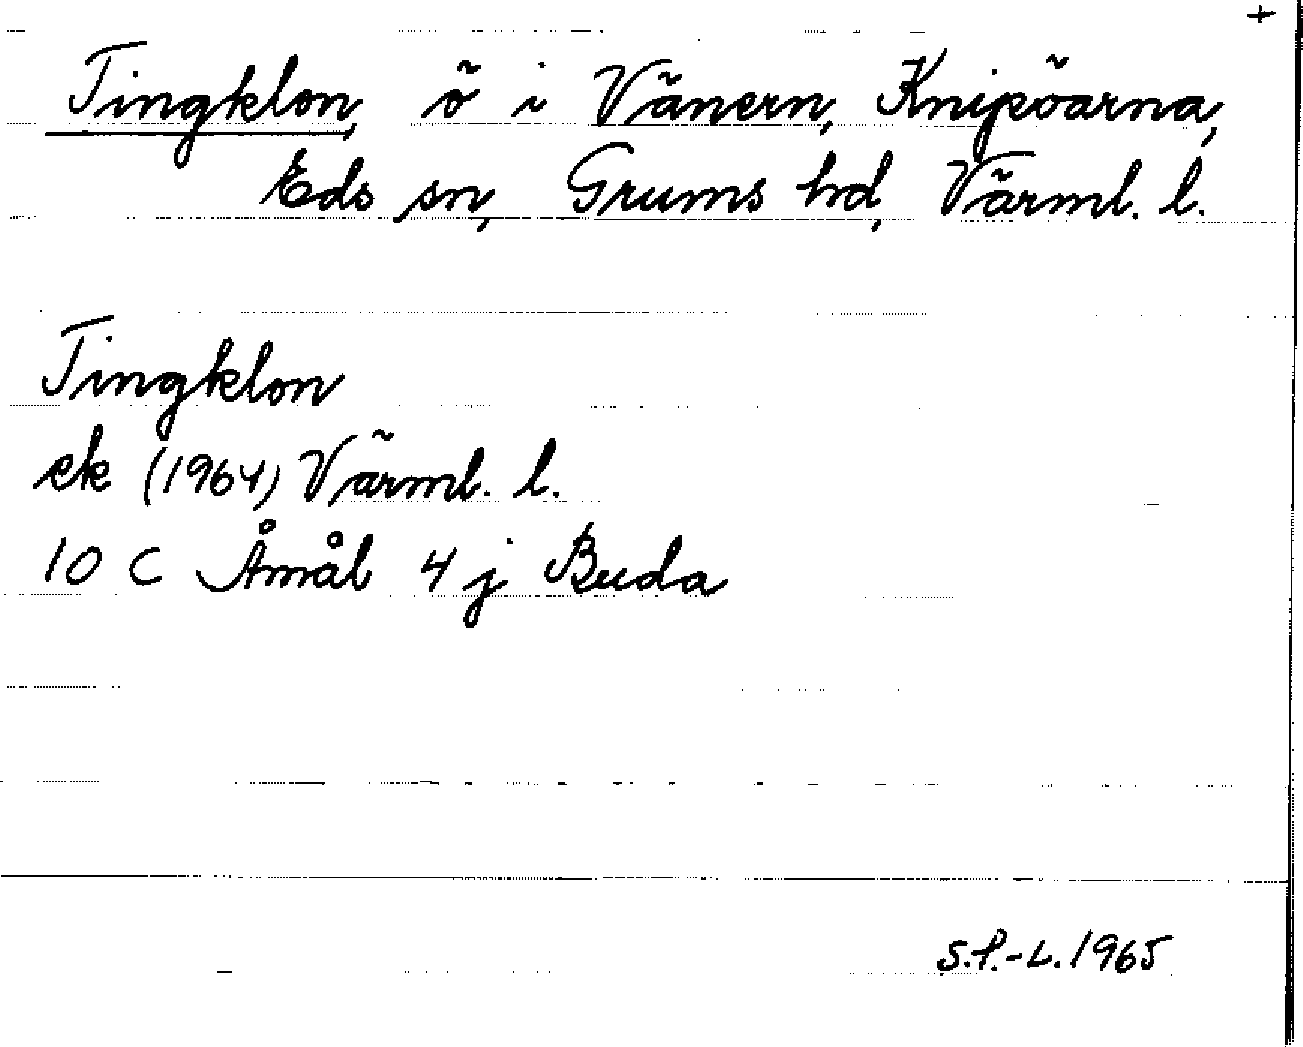 +
Tingklon, ö i Vänern, Knipöarna,
Eds sn, Grums hd, Värml. l.
Tingklon
ek (1964) Värml. l.
10 C Åmål 4 j Buda
S.P.-L. 1965